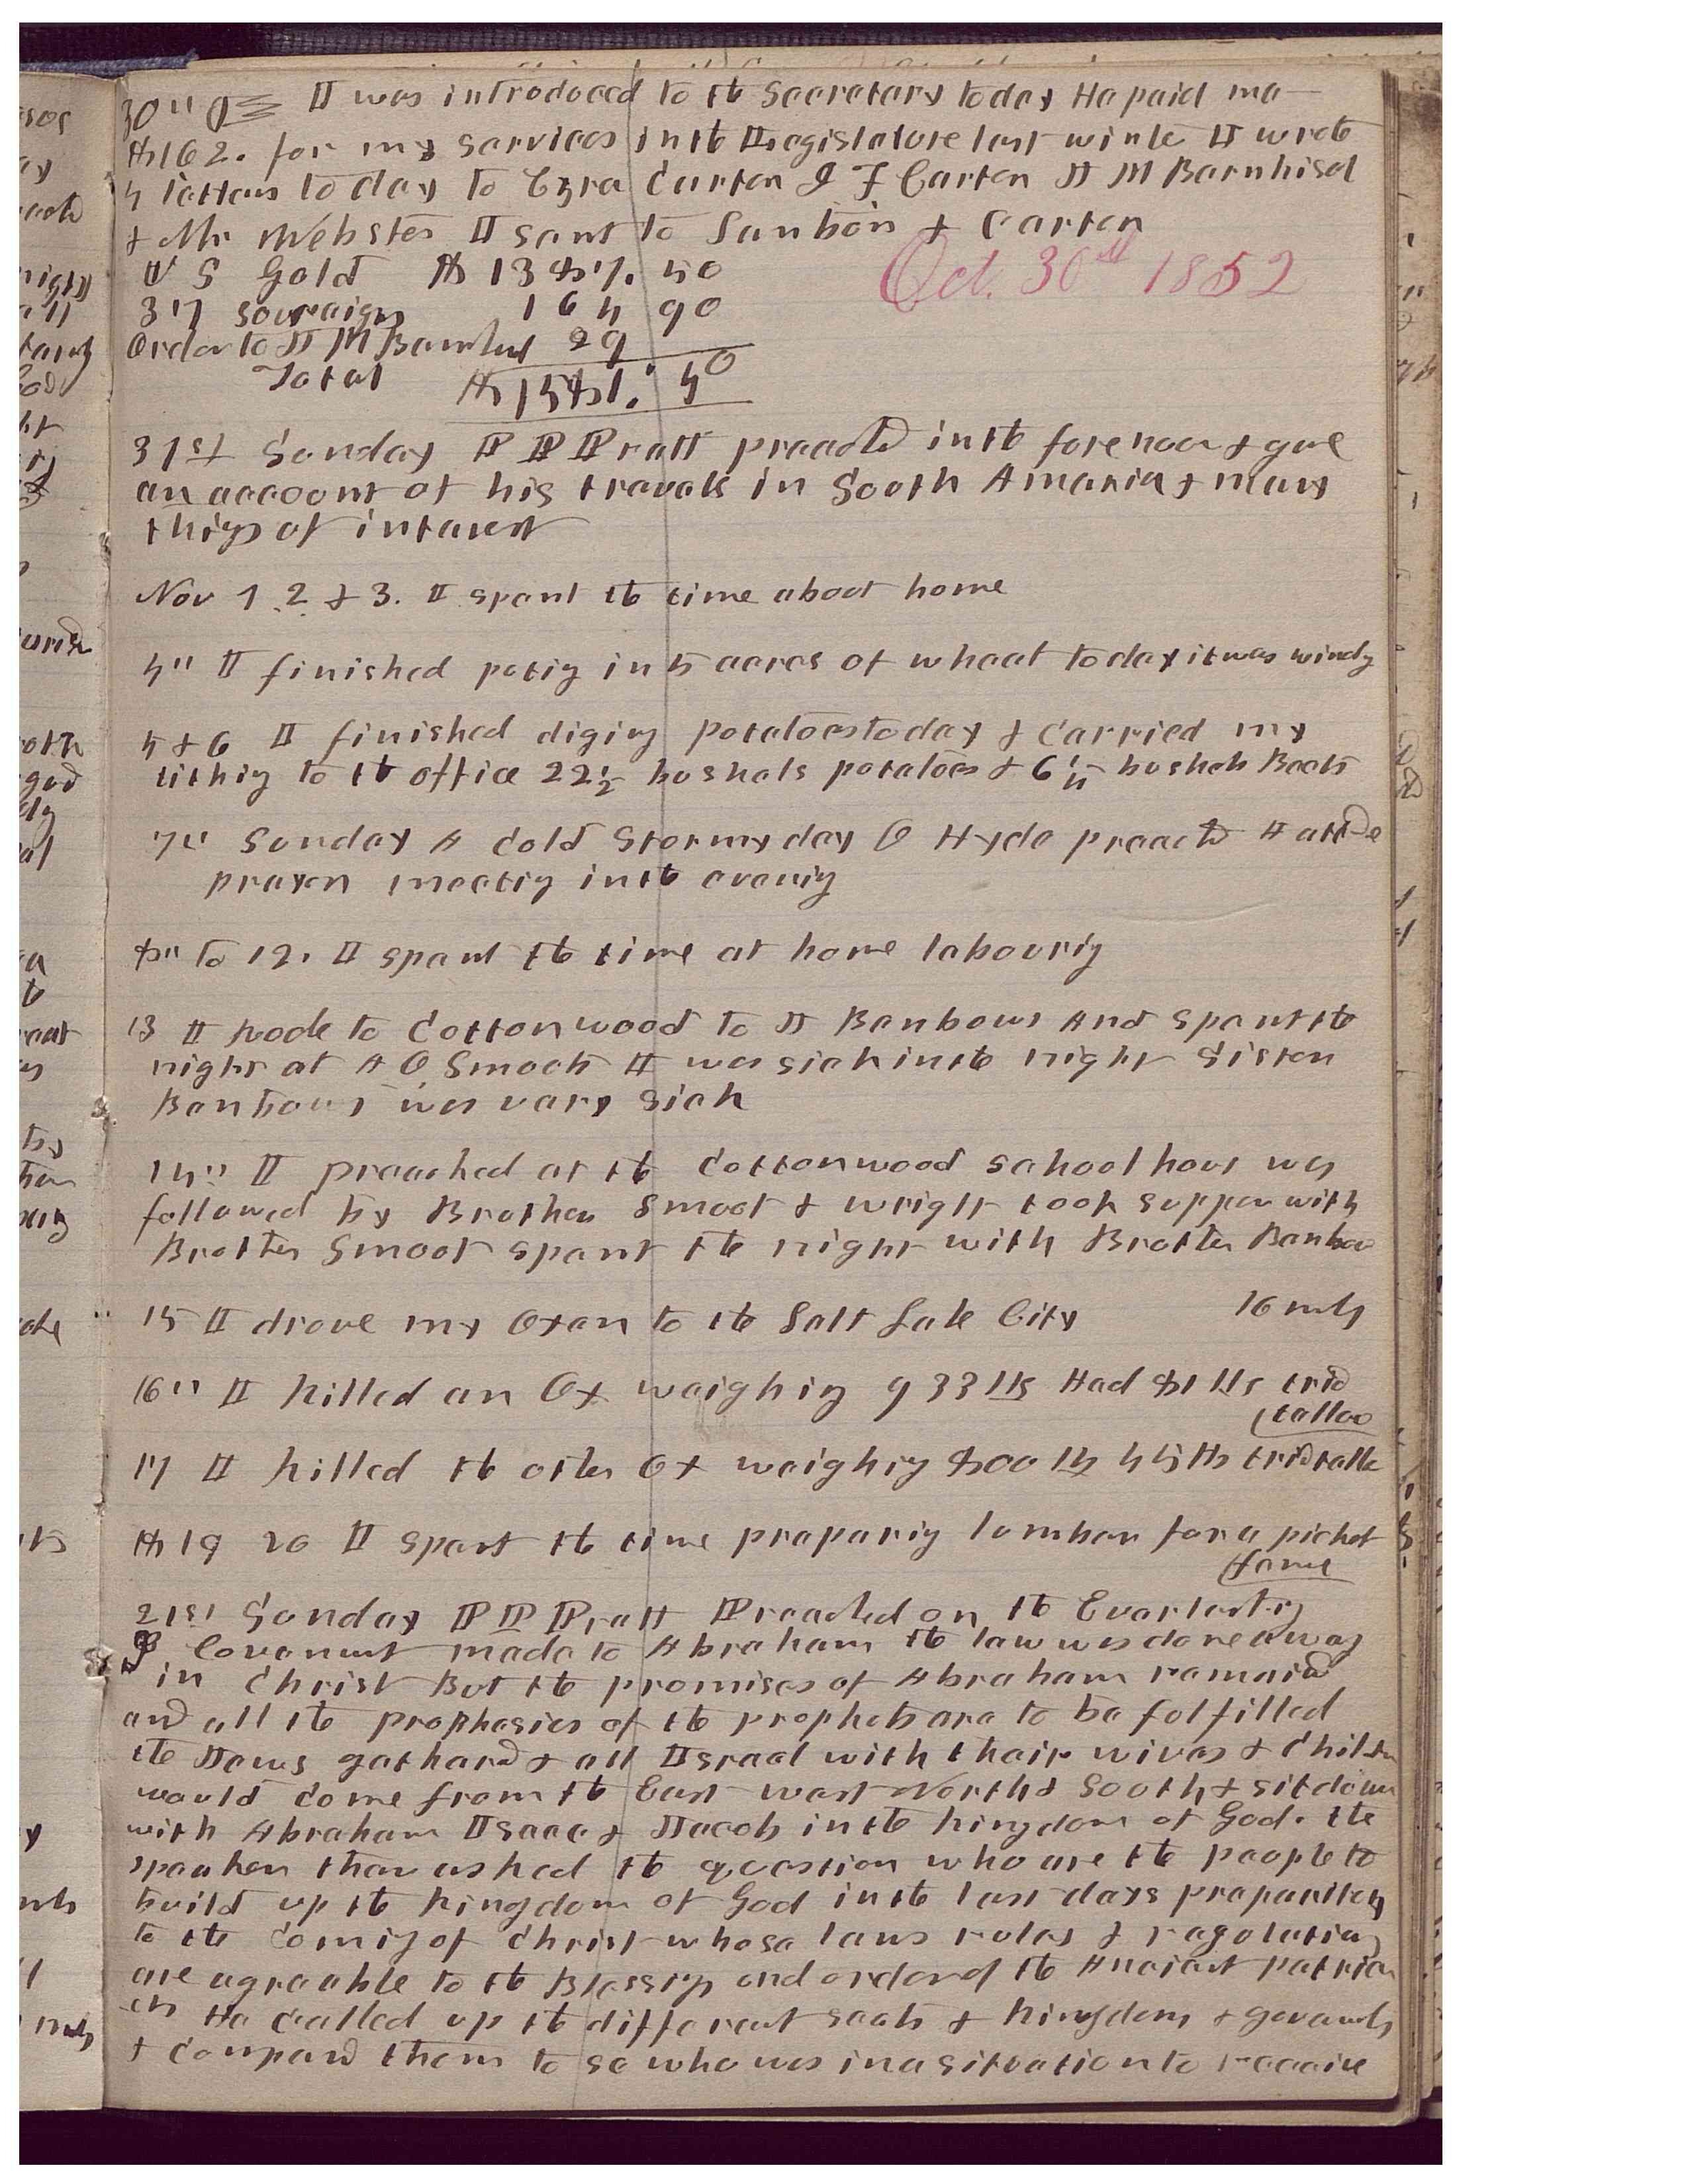 30th I was introduced to the Secretary today He paid me
$162. for my services in the Legislature last winter I wrote
4 letters to day to Ezra Carter I F Carter J M Barnhisel
& Mr Webster I sent to Sanborn & Carter
U S Gold $ 1387. 50
Oct. 30th 1852
37 sovereigns 164 90
Order to J M Barnhisel 29
Total $1581. 40
31st Sunday P P Pratt preached in the forenoon & gave
an account of his travels in South America & many
things of interest
Nov 1 2 & 3. I spent the time about home
4" I finished puting in 5 acres of wheat to day it was windy
5 & 6 I finished diging potatoes to day & carried my
tithing to the office 22½ bushels potatoes & 6¼ bushels Beets
7" Sunday A cold stormy day O Hyde preached I attended
prayer meeting in the evening
8" to 12. I spent the time at home labouring
13 I rode to Cottonwood to J Benbows And spent the
night at A O Smoots I was sick in the night Sister
Benbows was very sick
14" I preached at the Cottonwood school hous was
followed by Brother Smoot & wright took supper with
Brother Smoot spent the night with Brother Benbow
15 I drove my Oxen to the Salt Lake City 16 mls
16" I killed an Ox weighing 933 lbs Had 81 lbs tried
tallow
17 I killed the other Ox weighing 800 lbs 45 lbs tried tallow
18 19 20 I spent the time preparing lumber for a picket
fence
21st Sunday P P Pratt Preached on the Everlasting
Covenant made to Abraham the law was done away
in Christ But the promises of Abraham remained
and all the prophesies of the prophets are to be fulfilled
the Jews gathered & all Israel with their wives & children
would come from the East west North & South & sit down
with Abraham Isaac & Jacob in the kingdom of God. the
speaker then asked the question who are the people to
build up the kingdom of God in the last days preparitory
to the coming of Christ whose laws rules & regulations
are agreable to the Blessings and order of the Ancient patriar
chs He called up the different sects & kingdoms & goverments
& compared them to se who was in a situation to receive